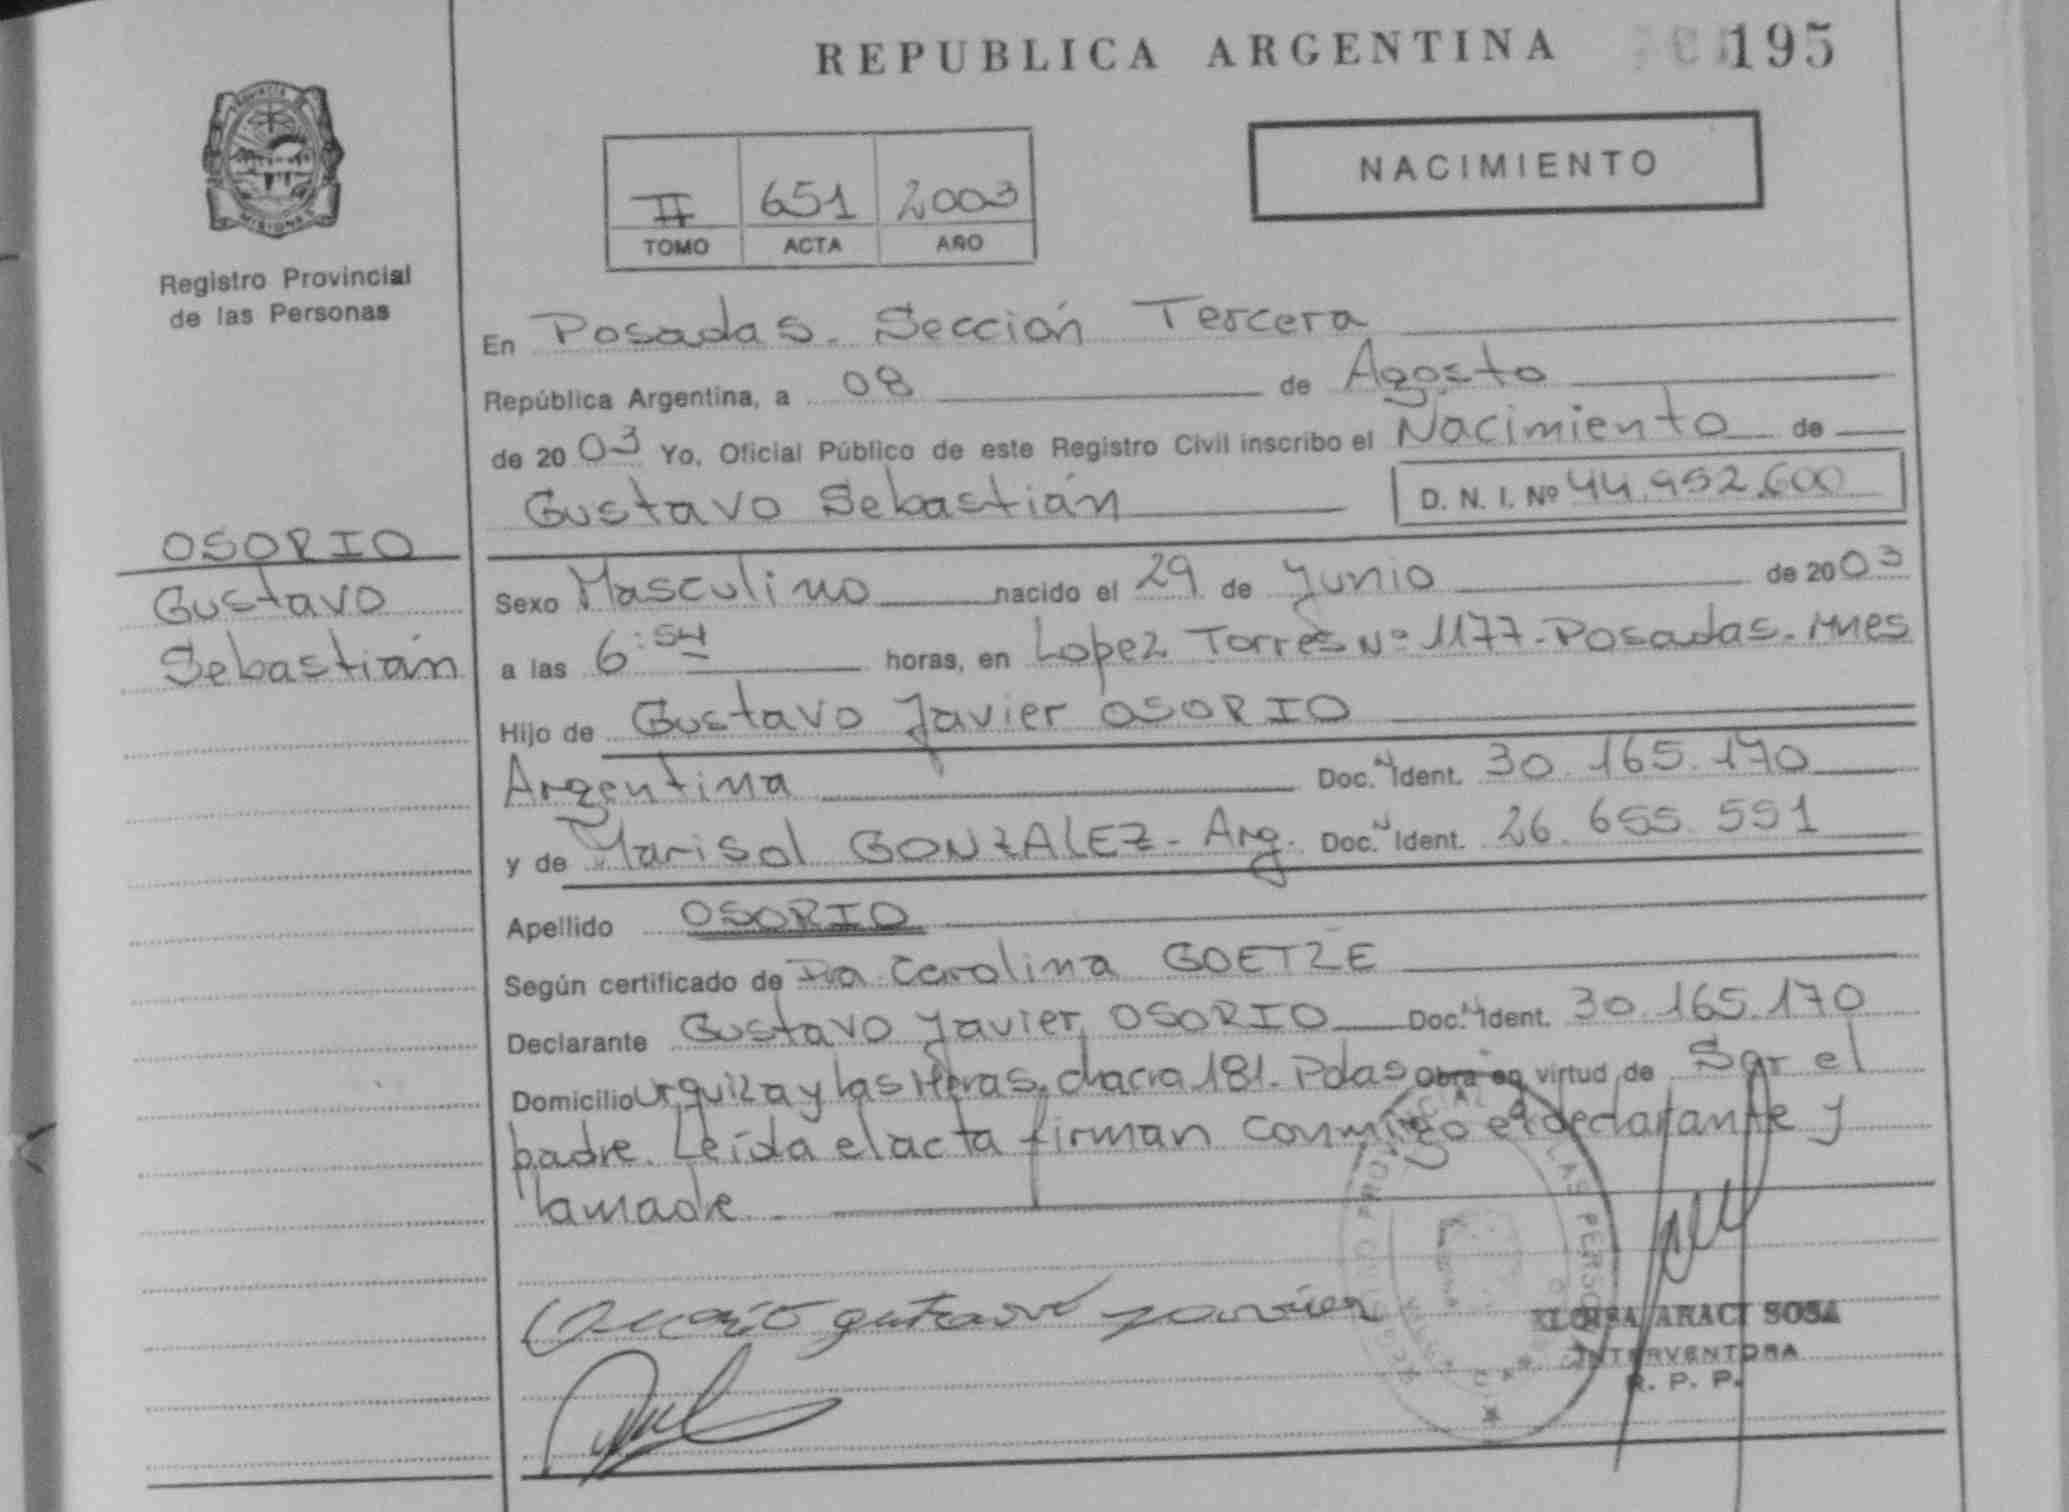 REPUBLICA ARGENTINA 195
PROVINCIA DE
MISIONES
Registro Provincial
de las Personas
NACIMIENTO
II 651 2003
TOMO ACTA AÑO
En Posadas. Sección Tercera
República Argentina, a 08 de Agosto
de 2003 Yo, Oficial Público de este Registro Civil inscribo el Nacimiento de
Gustavo Sebastián D. N. I. Nº 44.952.600
OSORIO
Gustavo
Sebastián
Sexo Masculino nacido el 29 de Junio de 2003
a las 6:54 horas, en Lopez Torres Nº 1177-Posadas-Mnes
Hijo de Gustavo Javier OSORIO
Argentina Doc. N Ident. 30.165.170
y de Marisol GONZALEZ-Arg. Doc. N Ident. 26.655.551
Apellido OSORIO
Según certificado de Dra Carolina GOETZE
Declarante Gustavo Javier OSORIO Doc. N Ident. 30.165.170
Domicilio Urquiza y las Heras. chacra 181. Pdas Obra en virtud de Ser el
padre. Leída el acta firman conmigo el declarante y
la madre
Osorio gustavo javier
ELOISA ARACI SOSA
INTERVENTORA
R. P. P.